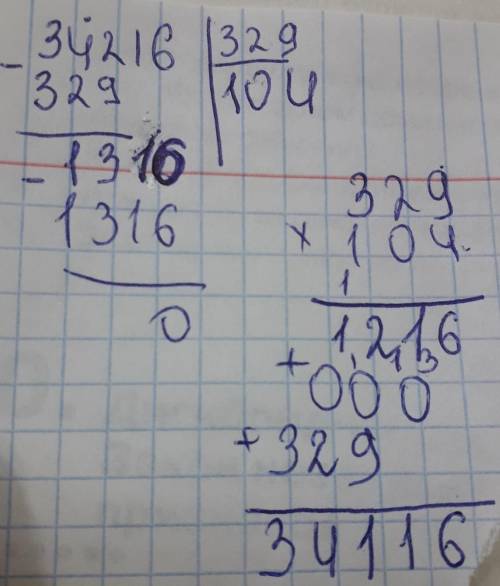 - 34216 | 329
329 104
- 1316
1316
0
329
× 104
1
1216
+ 1 1 3
000
+ 329
34116